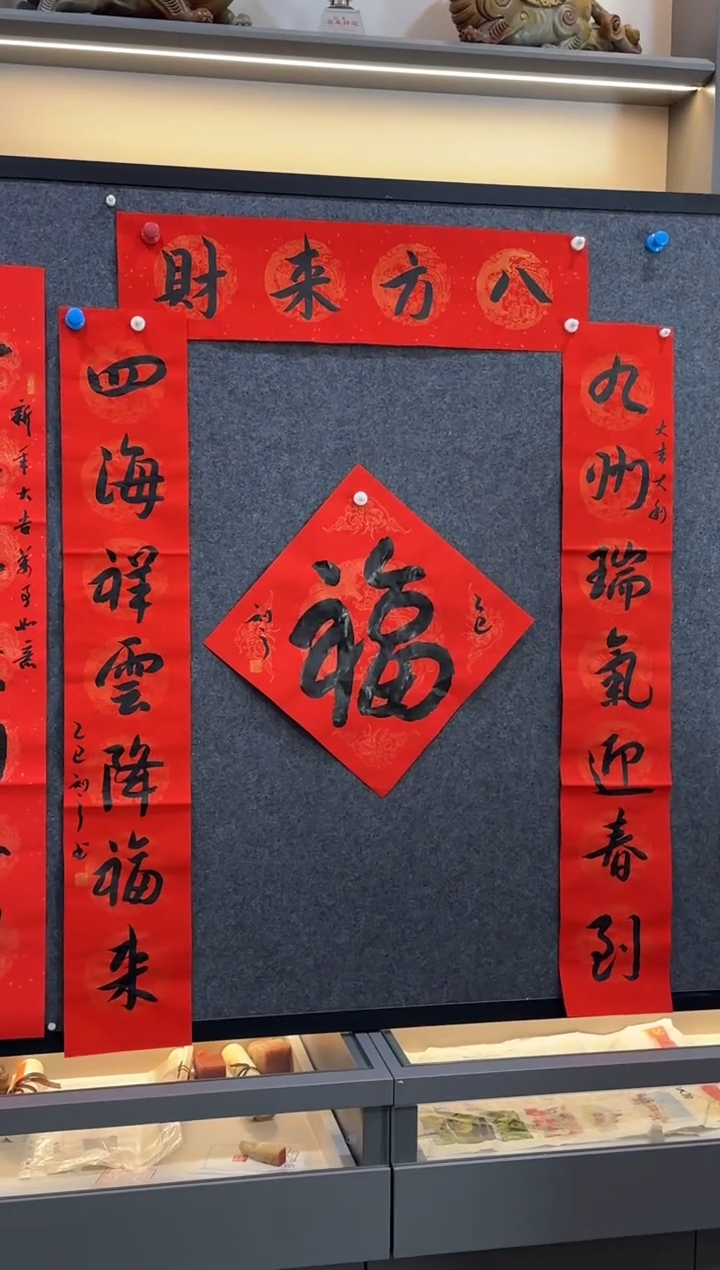 八方来財
九州瑞氣迎春到
大吉大利
四海祥雲降福来
乙巳
福
乙巳
新年大吉萬事如意